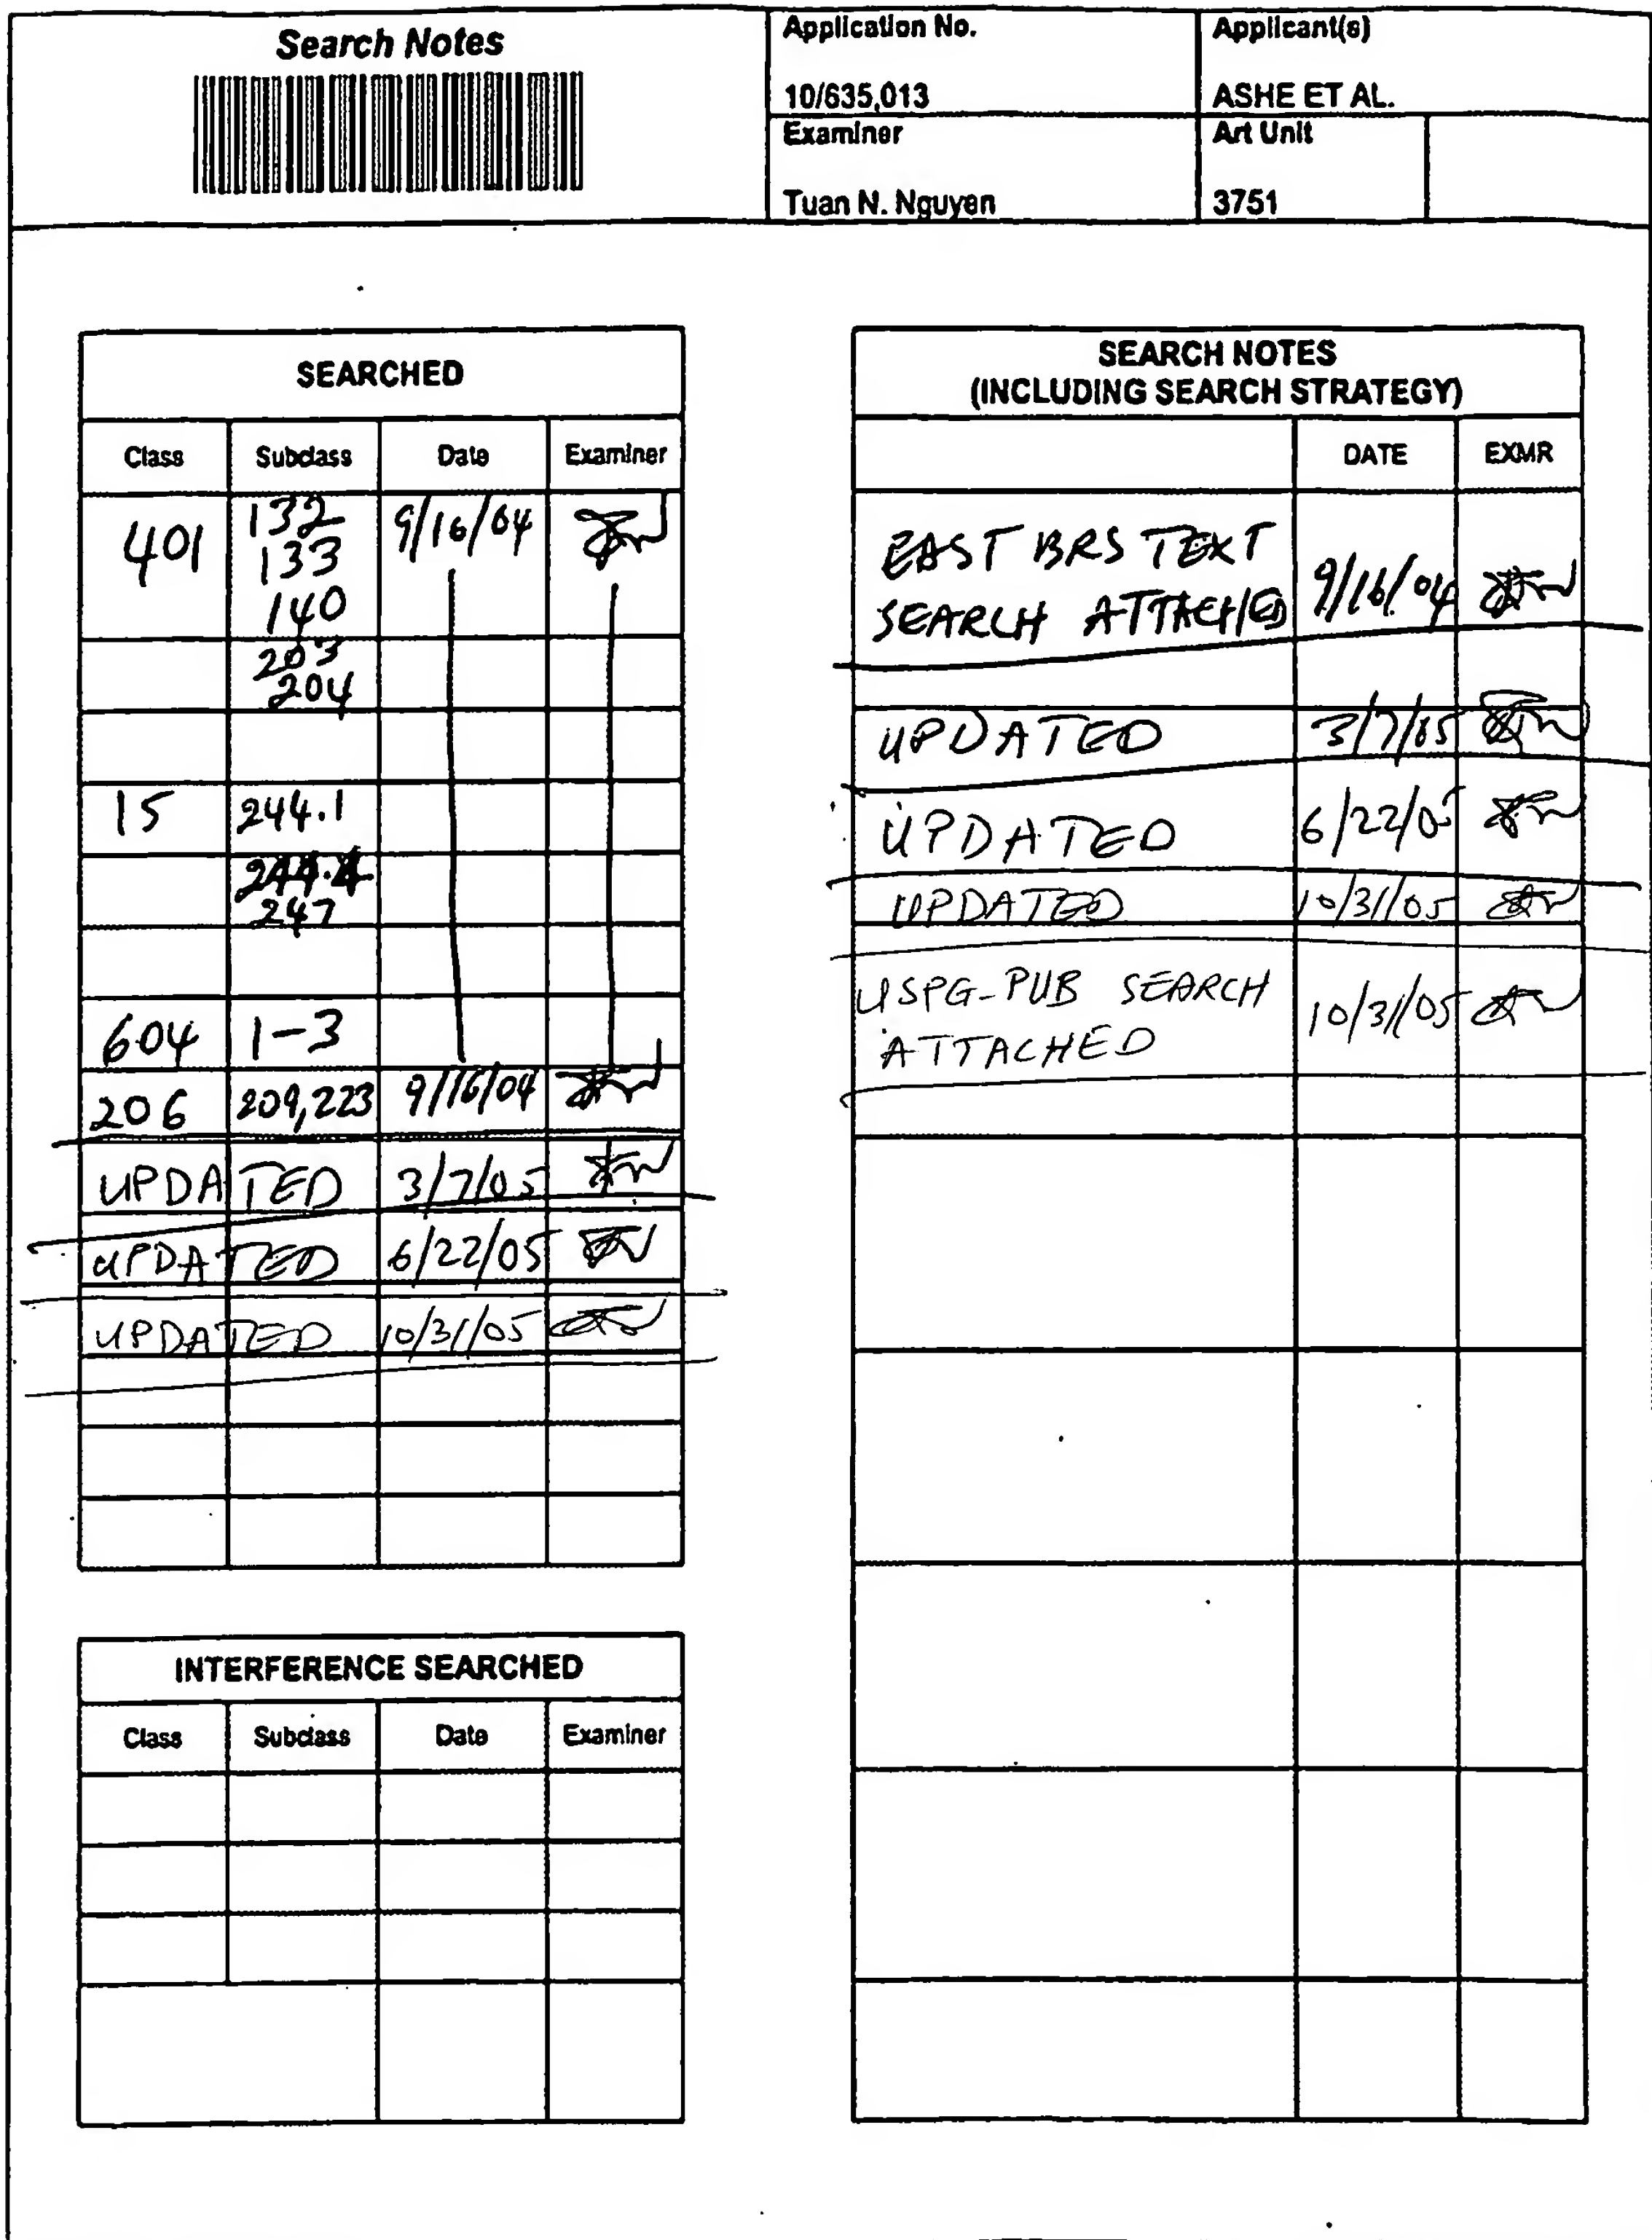 Search Notes
Application No.
10/635,013
Applicant(s)
ASHE ET AL.
Examiner
Tuan N. Nguyen
Art Unit
3751
SEARCHED
Class Subclass Date Examiner
401 132 9/16/04
133
140
203
204
15 244.1
244.4
247
604 1-3
206 209,223 9/16/04
UPDATED 3/7/05
UPDATED 6/22/05
UPDATED 10/31/05
INTERFERENCE SEARCHED
Class Subclass Date Examiner
SEARCH NOTES
(INCLUDING SEARCH STRATEGY)
DATE EXMR
EAST BRS TEXT
SEARCH ATTACHED 9/16/04
UPDATED 3/7/05
UPDATED 6/22/05
UPDATED 10/31/05
USPG-PUB SEARCH
ATTACHED 10/31/05